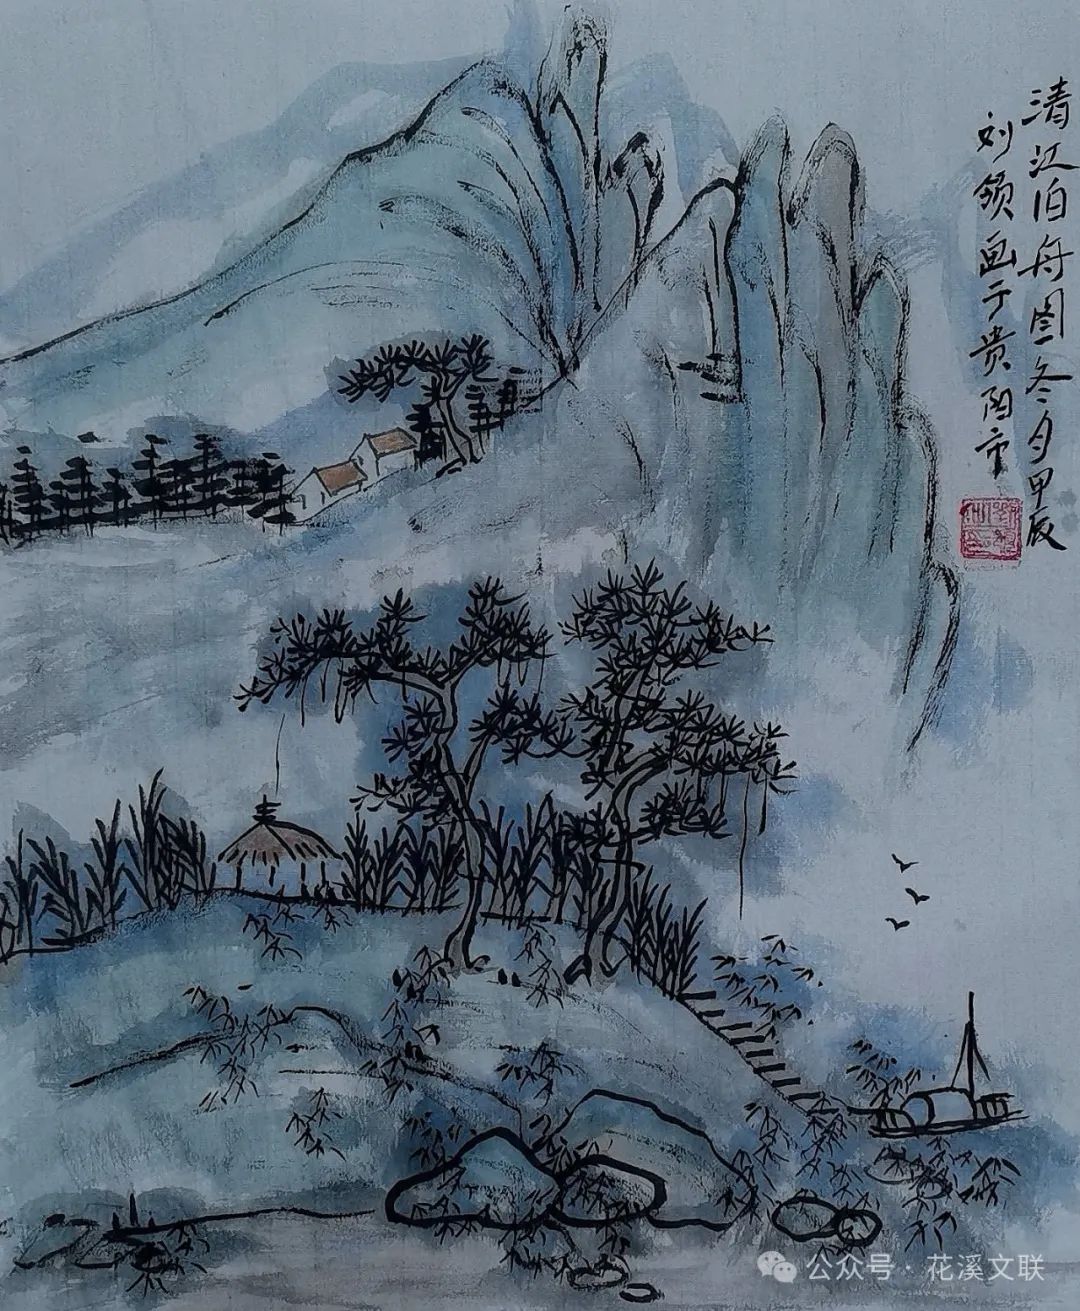 清江泊舟图冬月甲辰
刘领画于贵阳市
公众号·花溪文联